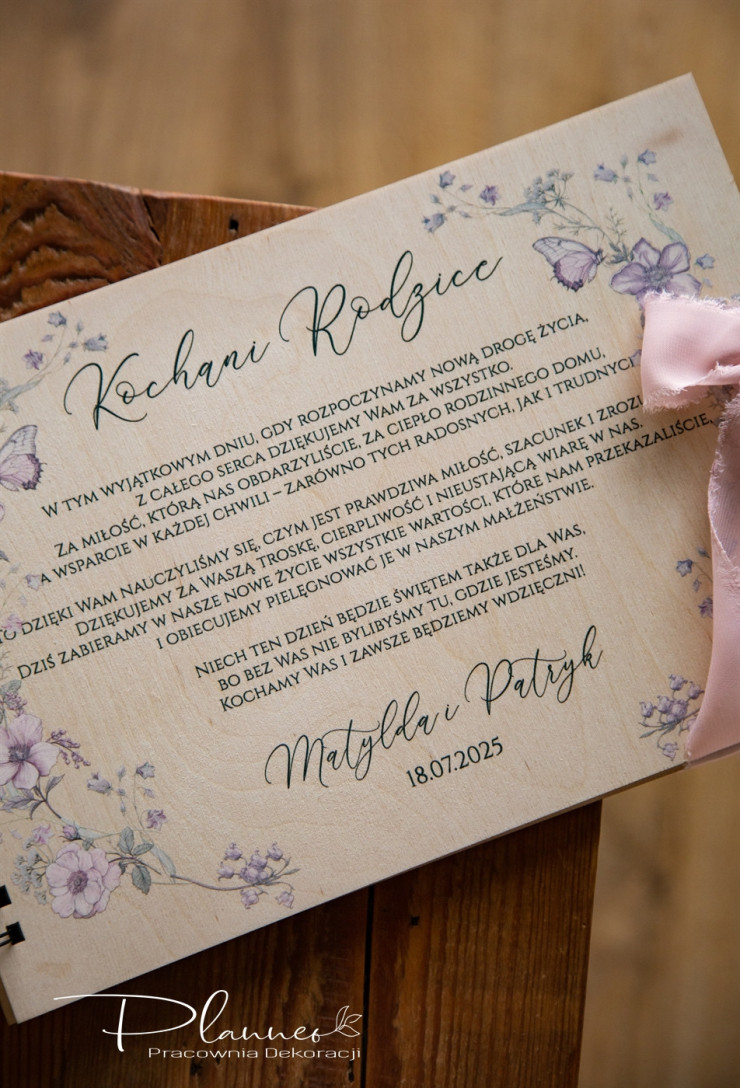 Kochani Rodzice
W TYM WYJĄTKOWYM DNIU, GDY ROZPOCZYNAMY NOWĄ DROGĘ ŻYCIA,
Z CAŁEGO SERCA DZIĘKUJEMY WAM ZA WSZYSTKO.
ZA MIŁOŚĆ, KTÓRĄ NAS OBDARZYLIŚCIE, ZA CIEPŁO RODZINNEGO DOMU,
A WSPARCIE W KAŻDEJ CHWILI – ZARÓWNO TYCH RADOSNYCH, JAK I
DZIĘKI WAM NAUCZYLIŚMY SIĘ, CZYM JEST PRAWDZIWA MIŁOŚĆ, SZACUNEK I
DZIĘKUJEMY ZA WASZĄ TROSKĘ, CIERPLIWOŚĆ I NIEUSTAJĄCĄ WIARĘ W NAS.
DZIŚ ZABIERAMY W NASZE NOWE ŻYCIE WSZYSTKIE WARTOŚCI, KTÓRE NAM PRZEKAZALIŚCIE,
I OBIECUJEMY PIELĘGNOWAĆ JE W NASZYM MAŁŻEŃSTWIE.
NIECH TEN DZIEŃ BĘDZIE ŚWIĘTEM TAKŻE DLA WAS,
BO BEZ WAS NIE BYLIBYŚMY TU, GDZIE JESTEŚMY.
KOCHAMY WAS I ZAWSZE BĘDZIEMY WDZIĘCZNI!
Matylda i Patryk
18.07.2025
Planneo
Pracownia Dekoracji